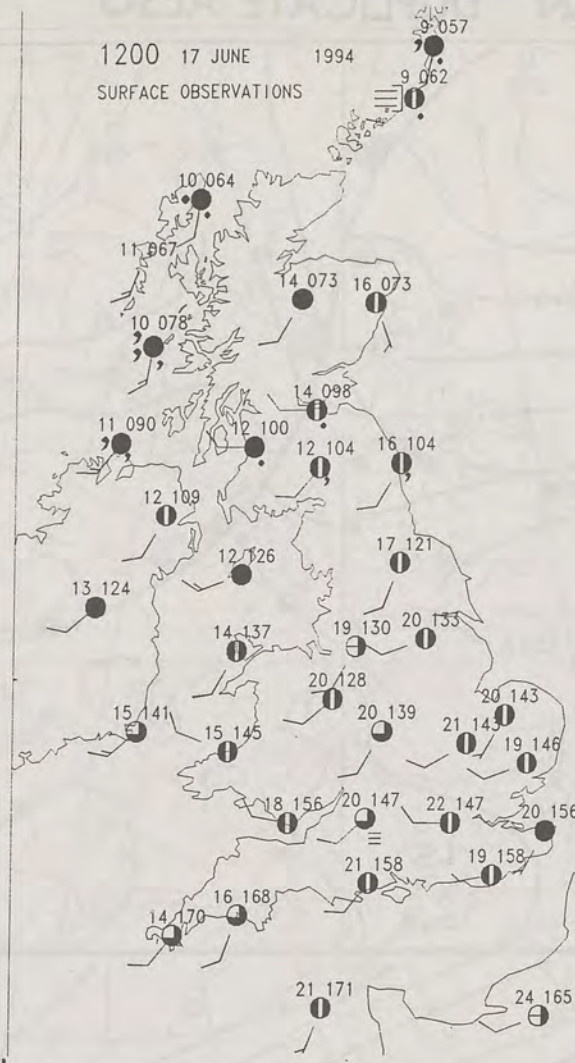 9 057
1200 17 JUNE 1994
SURFACE OBSERVATIONS
9 062
10 064
11 067
14 073
16 073
10 078
14 098
11 090
12 100
12 104
16 104
12 109
17 121
12 126
13 124
14 137
19 130
20 133
20 128
20 143
15 141
20 139
21 143
15 145
19 146
18 156
20 147
22 147
20 156
21 158
19 158
16 168
14 170
21 171
24 165